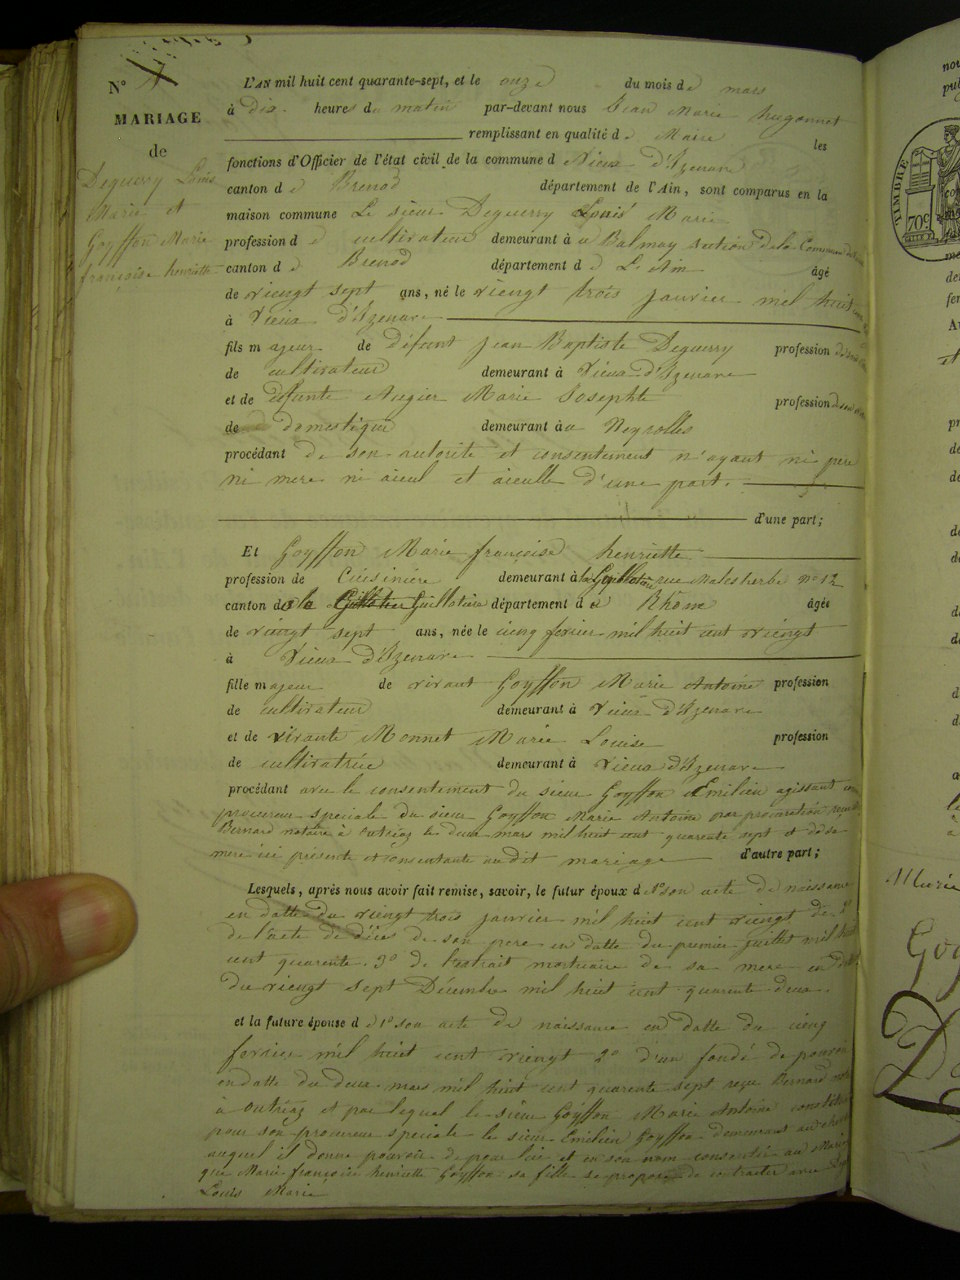 N° 4
MARIAGE
de
Deguerry Louis
Marie et
Goyffon Marie
françoise henriette
L'AN mil huit cent quarante-sept, et le onze du mois de mars
à dix heures du matin par-devant nous Jean Marie hugonnet
remplissant en qualité de Maire les
fonctions d'Officier de l'état civil de la commune d Vieux d'Izenave
canton d e Brenod département de l'Ain, sont comparus en la
maison commune Le sieur Deguerry Louis Marie
profession d e cultivateur demeurant à u Balmay section de la Commune
canton d e Brenod département d e L'Ain âgé
de viengt sept ans, né le viengt trois janvier mil huit
à Vieux d'Izenave
fils majeur de défunt Jean Baptiste Deguerry profession
de cultivateur demeurant à Vieux-d'Izenave
et de défunte Augier Marie Josephte profession
de domestique demeurant à u Neyrolles
procédant de son autorité et consentement n'ayant ni pere
ni mere ni aieul et aieulle d'une part.
d'une part;
Et Goyffon Marie francoise henriette
profession de Cuisinière demeurant à la Guillotière rue Malesherbe n° 12
canton de la Guillotière département d u Rhone âgée
de viengt sept ans, née le cienq fevrier mil huit cent viengt
à Vieux d'Izenave
fille majeur de vivant Goyffon Marie Antoine profession
de cultivateur demeurant à Vieux-d'Izenave
et de vivante Monnet Marie Louise profession
de cultivatrice demeurant à Vieux d'Izenave
procédant avec le consentement du sieur Goyffon Emilien agissant
procureur speciale du sieur Goyffon Marie Antoine par procuration reçue
Bernard notaire à Outriaz le deux mars mil huit cent quarente sept et de sa
mere ici présente et consentante au dit mariage d'autre part;
Lesquels, après nous avoir fait remise, savoir, le futur époux d e 1° son acte de naissance
en datte du viengt trois janvier mil huit cent viengt 2°
de l'acte de décès de son pere en datte du premier juillet mil huit
cent quarente. 3° de l'extrait mortuaire de sa mere en datte
du viengt sept Décembre mil huit cent quarente deux.
et la future épouse d e 1° son acte de naissance en datte du cienq
fevrier mil huit cent viengt 2° d'un fondé de pouvoir
en datte du deux mars mil huit cent quarente sept reçu Bernard
à Outriaz et par lequel le sieur Goyffon Marie Antoine constitue
pour son procureur speciale le sieur Emilien Goyffon demeurant
auquel il donne pouvoir de pour lui et en son nom consentir au Mariage
que Marie françoise henriette Goyffon sa fille se propose de contracter avec
Louis Marie
TIMBRE
70c